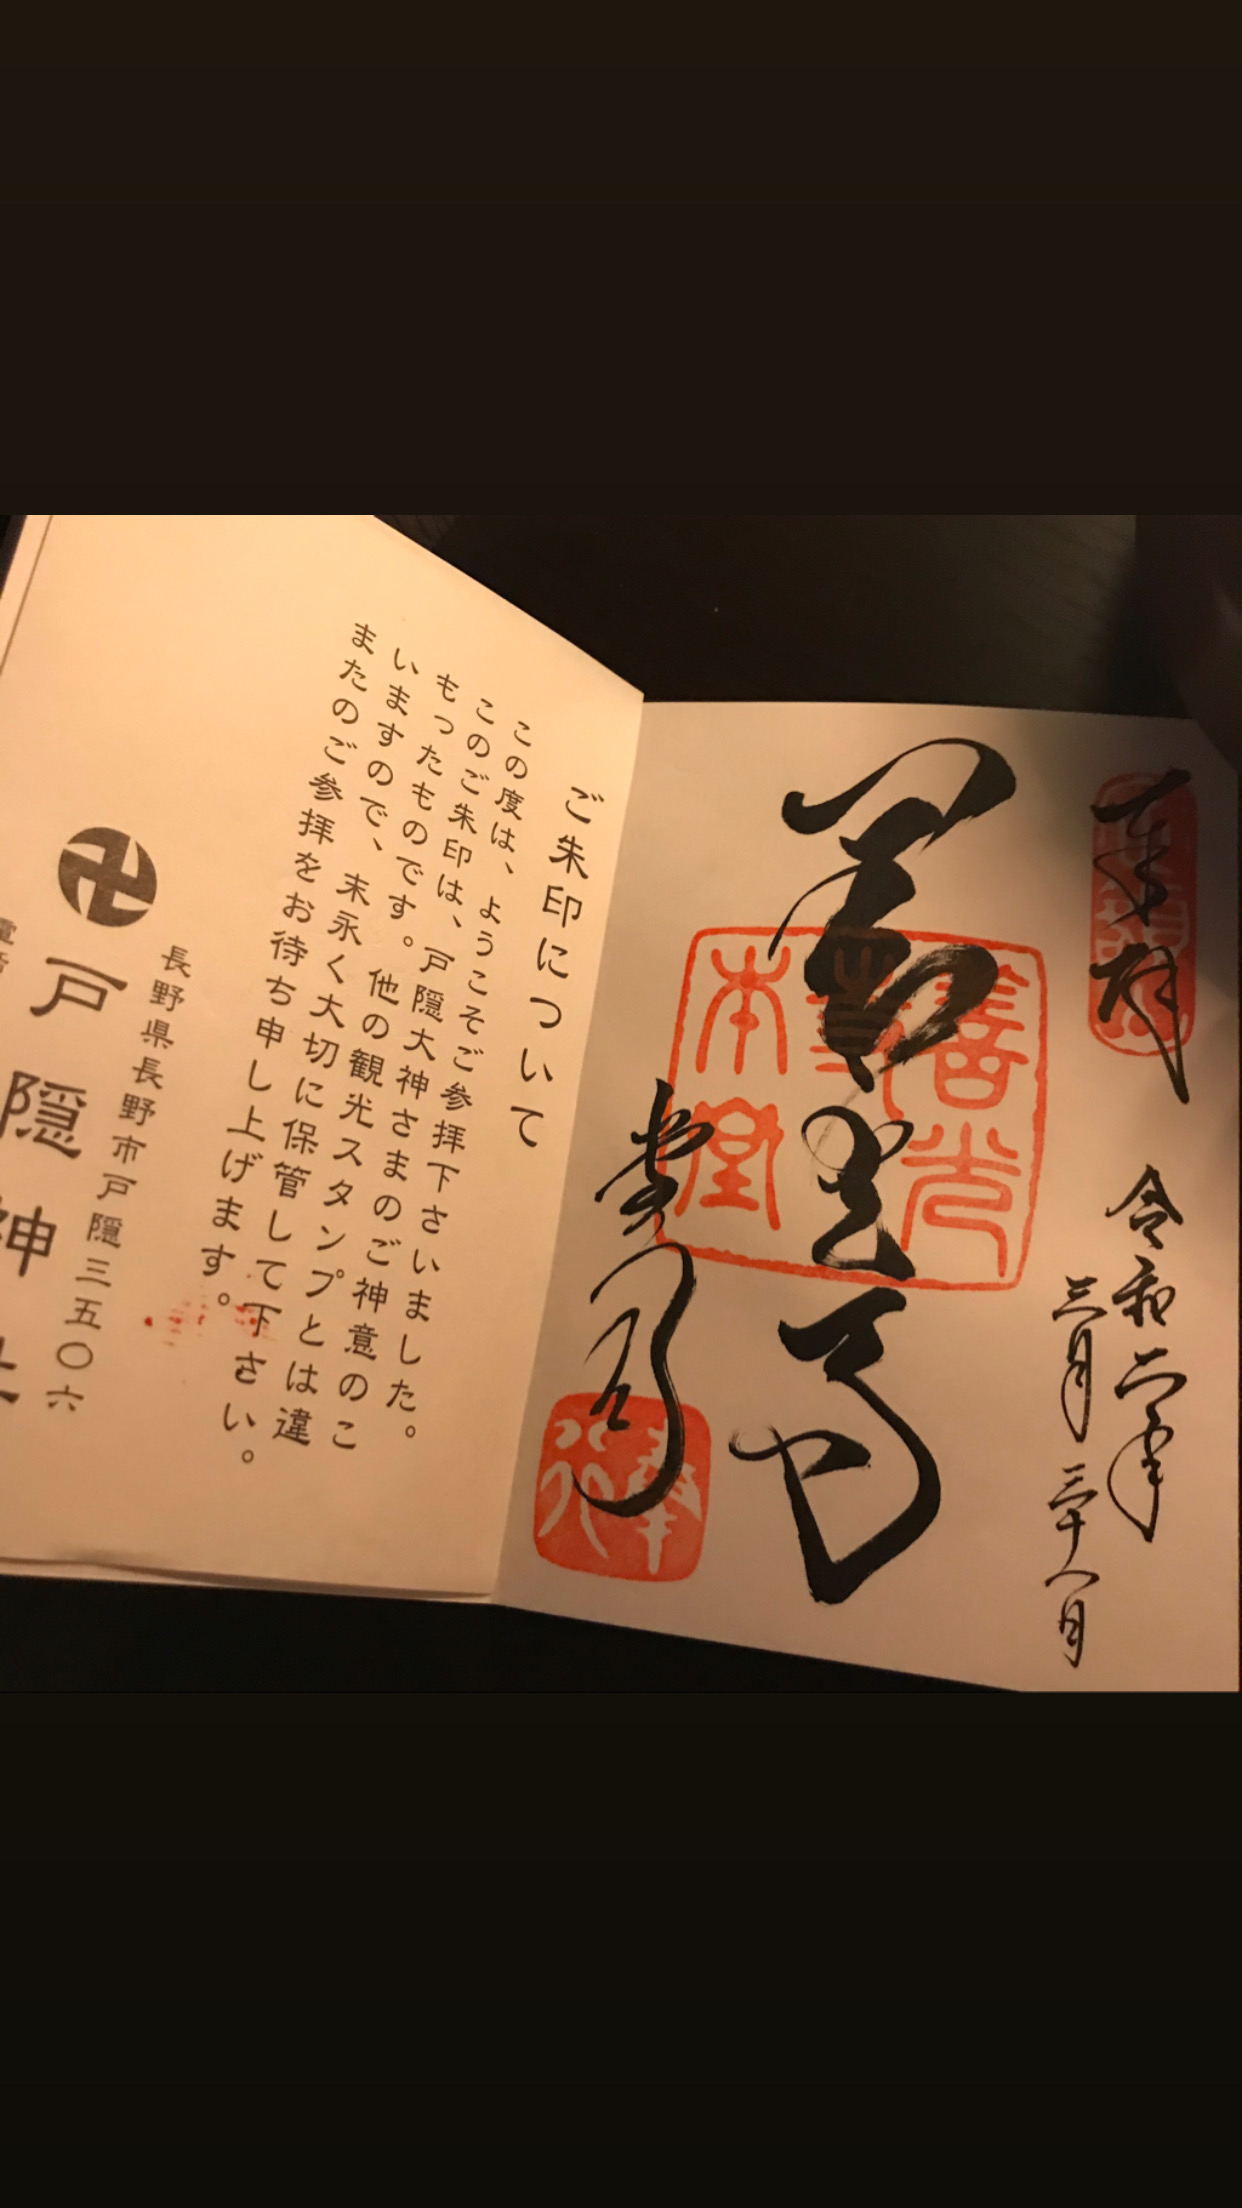 奉拝
令和二年
三月二十八日
善光寺
善光
本堂
堂司
ご朱印について
この度は、ようこそご参拝下さいました。
このご朱印は、戸隠大神さまのご神意のこ
もったものです。他の観光スタンプとは違
いますので、末永く大切に保管して下さい。
またのご参拝をお待ち申し上げます。
長野県長野市戸隠三五〇六
戸隠神社